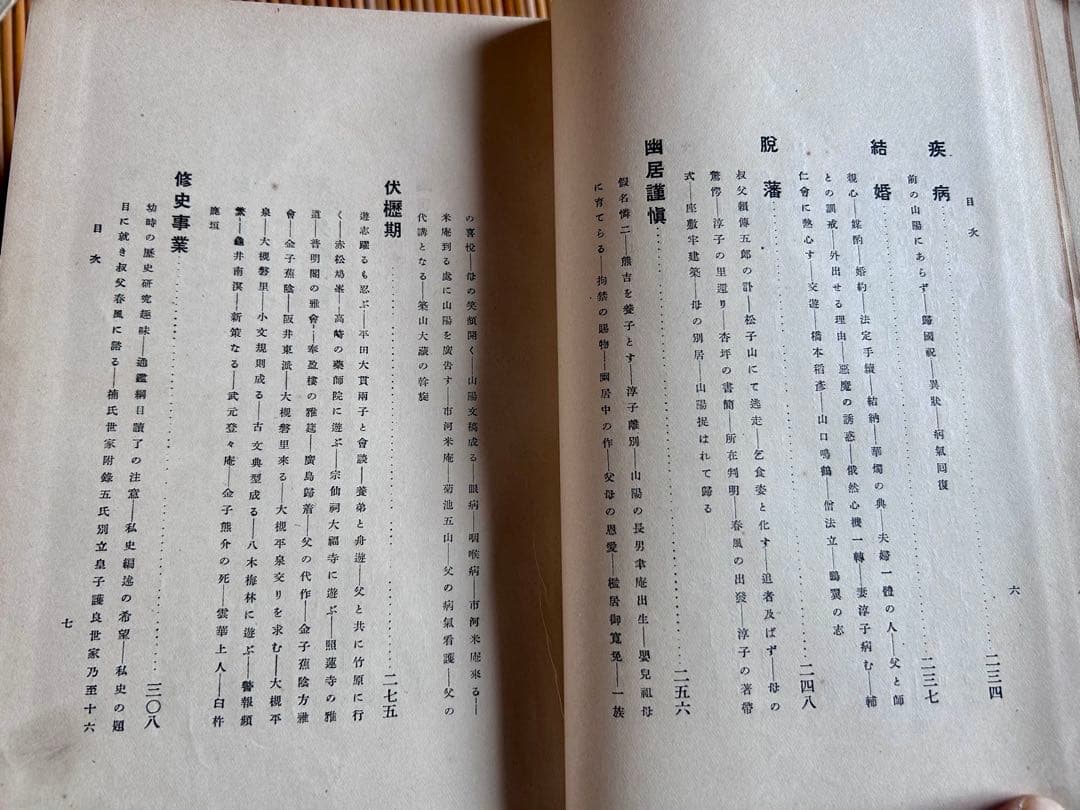 目次
六
疾病……二三四
前の山陽にあらず――歸國祝――異狀――病氣回復
結婚……二三七
親心――媒酌――婚約――法定手續――結納――華燭の典――夫婦一體の人――父と師
との訓戒――外出せる理由――惡魔の誘惑――俄然心機一轉――妻淳子病む――輔
仁會に熱心す――交遊――橋本稻彥――山口鳴鶴――僧法立――鵾翼の志
脫藩……二四八
叔父賴傳五郎の訃――松子山にて迯走――乞食姿と化す――追者及ばず――母の
驚愕――淳子の里還り――杏坪の書簡――所在判明――春風の出發――淳子の著帶
式――座敷牢建築――母の別居――山陽捉はれて歸る
幽居謹愼……二五六
假名憐二――熊吉を養子とす――淳子離別――山陽の長男聿庵出生――嬰兒祖母
に育てらる――拘禁の賜物――幽居中の作――父母の恩愛――檻居御寬免――一族
の喜悅――母の笑顏開く――山陽文稿成る――眼病――咽喉病――市河米庵來る――
米庵到る處に山陽を廣告す――市河米庵――菊池五山――父の病氣看護――父の
代講となる――築山大藏の斡旋
伏櫪期……二七五
遊志躍るも忍ぶ――平田大貫兩子と會談――養弟と舟遊――父と共に竹原に行
く――赤松鳩峯――高崎の藥師院に遊ぶ――宗仙祠大福寺に遊ぶ――照蓮寺の雅
遊――普明閣の雅會――奉盈樓の雅筵――廣島歸着――父の代作――金子蕉陰方雅
會――金子蕉陰――阪井東派――大槻磐里來る――大槻平泉交りを求む――大槻平
泉――大槻磐里――小文規則成る――古文典型成る――八木梅林に遊ぶ――警報頻
繁――龜井南溟――新策なる――武元登々庵――金子熊介の死――雲華上人――臼杵
鹿垣
修史事業……三〇八
幼時の歷史研究趣味――通鑑綱目讀了の注意――私史編述の希望――私史の題
目に就き叔父春風に諮る――楠氏世家附錄五氏別立皇子護良世家乃至十六
目次
七